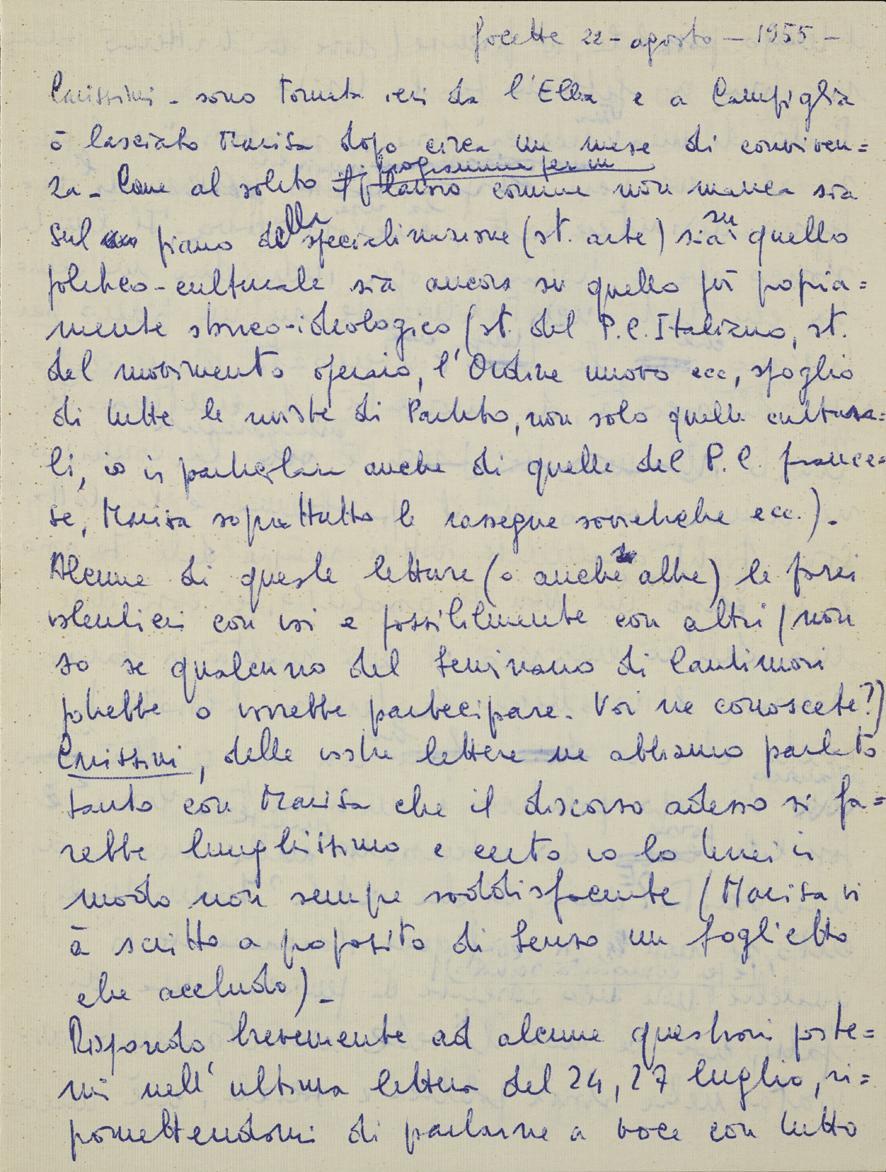 Focette 22 - agosto - 1955 -
Carissimi - sono tornata ieri da l'Elba e a Campiglia
ò lasciato Marisa dopo circa un mese di conviven=
za - Come al solito il programma per un lavoro comune non manca sia
sul piano della specializzazione (st. arte) sia su quello
politico-culturale sia ancora su quello più propria=
mente storico-ideologico (st. del P.C. Italiano, st.
del movimento operaio, l'Ordine nuovo ecc, spoglio
di tutte le riviste di Partito, non solo quelle cultura=
li, io in particolare anche di quelle del P.C. france=
se, Marisa soprattutto le rassegne sovietiche ecc.) -
Alcune di queste letture (o anche altre) le farei
volentieri con voi e possibilmente con altri (non
so se qualcuno del Seminario di Cantimori
potrebbe o vorrebbe partecipare. Voi ne conoscete?)
Carissimi, delle vostre lettere ne abbiamo parlato
tanto con Marisa che il discorso adesso si fa=
rebbe lunghissimo e certo io lo terrei in
modo non sempre soddisfacente (Marisa vi
à scritto a proposito di Senso un foglietto
che accludo) -
Rispondo brevemente ad alcune questioni poste=
mi nell'ultima lettera del 24, 27 luglio, ri=
promettendomi di parlarne a voce con tutto